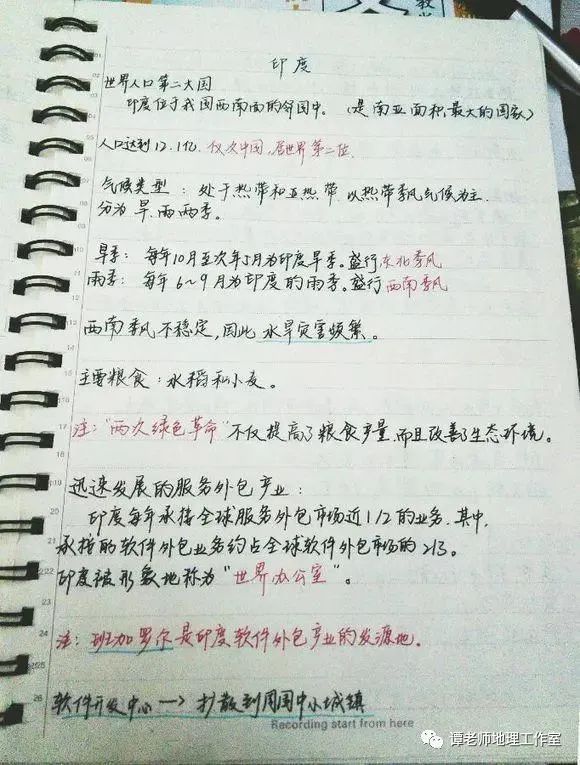 印度
世界人口第二大国
印度位于我国西南面的邻国中。(是南亚面积最大的国家)
人口达到12.1亿.仅次中国,居世界第二位.
气候类型:处于热带和亚热带 以热带季风气候为主.
分为旱.雨两季。
旱季:每年10月至次年5月为印度旱季。盛行东北季风
雨季:每年6~9月为印度的雨季。盛行西南季风
西南季风不稳定,因此水旱灾害频繁。
主要粮食:水稻和小麦。
注:"两次绿色革命"不仅提高了粮食产量而且改善了生态环境。
迅速发展的服务外包产业:
印度每年承接全球服务外包市场近1/2的业务.其中,
承接的软件外包业务约占全球软件外包市场的2/3。
印度被形象地称为"世界办公室"。
注:班加罗尔是印度软件外包产业的发源地。
软件开发中心—>扩散到周围中小城镇
Recording start from here
谭老师地理工作室